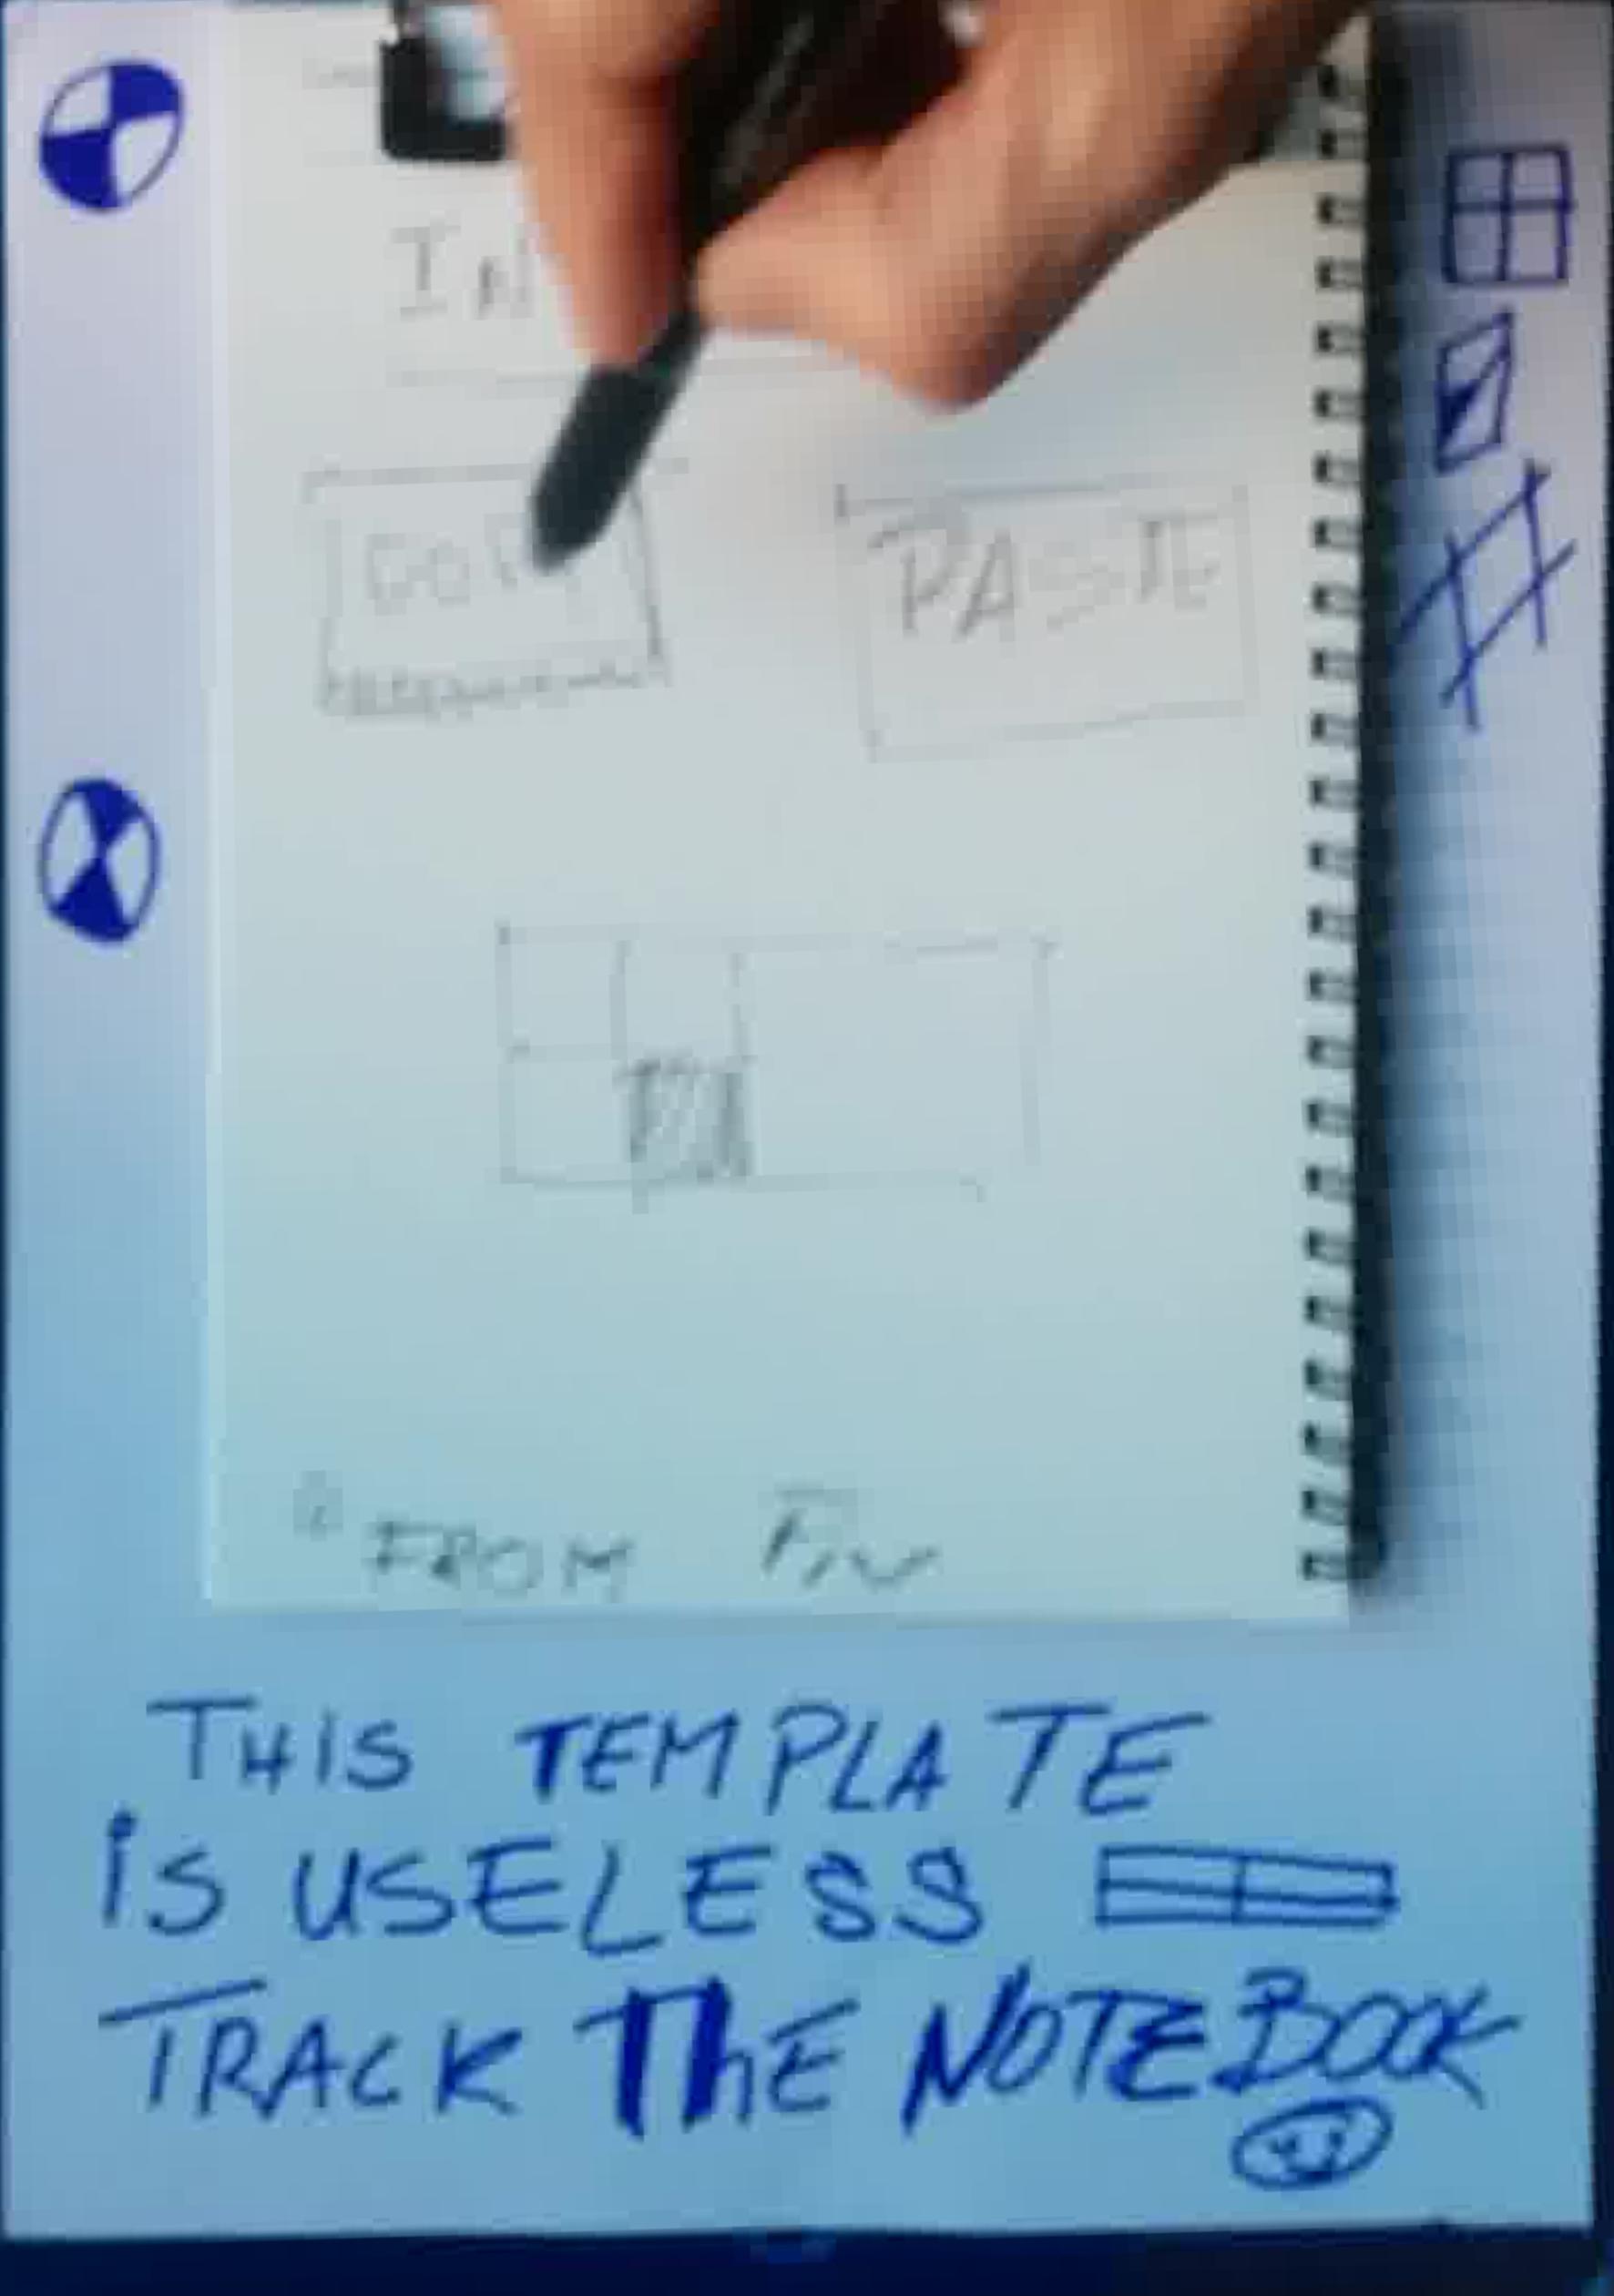 IN
COPY
PASTE
FROM
THIS TEMPLATE
iS USELESS
TRACK ThE NOTEBOOK